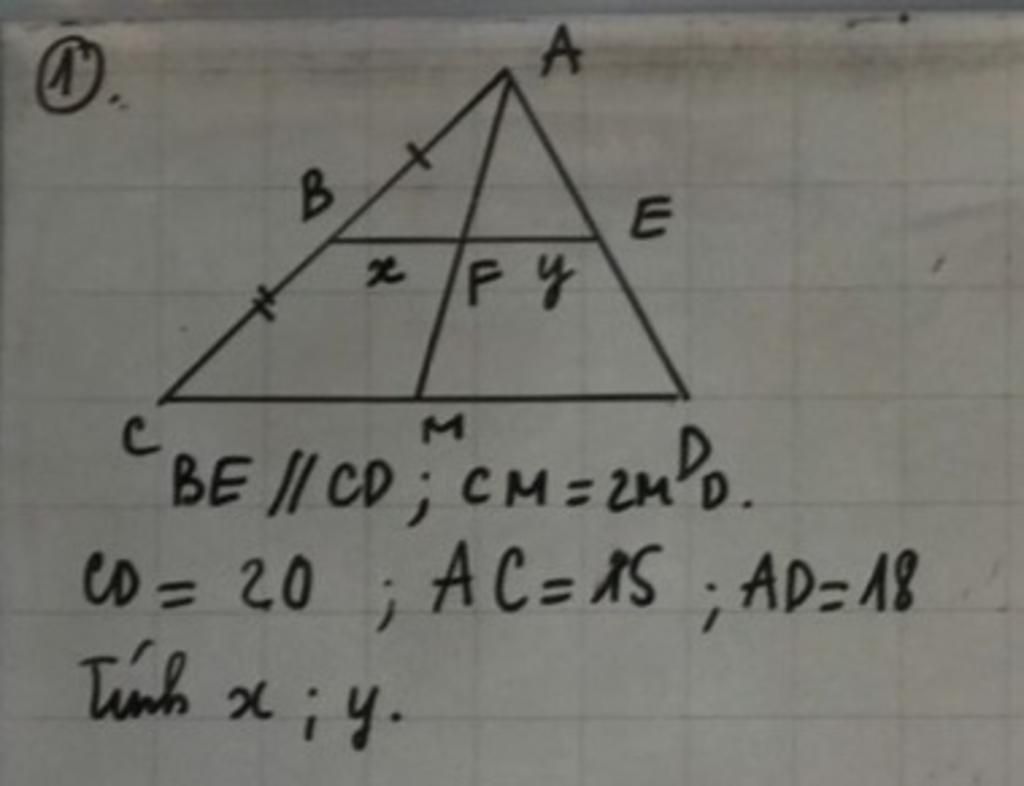 ①.
A
B
E
x F y
C M D
BE // CD ; CM = 2MD.
CD = 20 ; AC = 15 ; AD = 18
Tính x ; y.